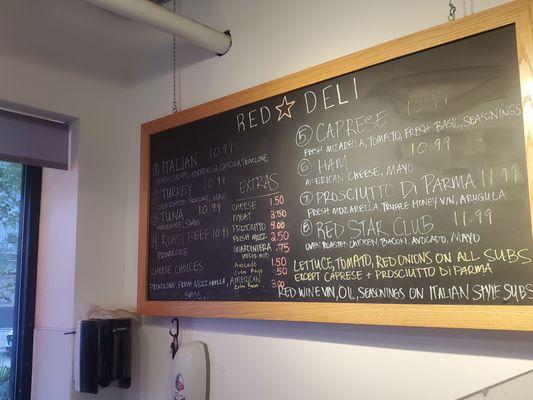 RED ☆ DELI
① ITALIAN 10.99
GENOA SALAMI, MORTADELLA, CAPICOLA, PROVOLONE
② TURKEY 10.99
OVEN ROASTED, PROVOLONE, MAYO
③ TUNA 10.99
HOMEMADE, SWISS
④ ROAST BEEF 10.99
PROVOLONE
CHEESE CHOICES
PROVOLONE, FRESH MOZZARELLA, AMERICAN
SWISS,
EXTRAS
CHEESE 1.50
MEAT 3.50
PROSCIUTTO 4.00
FRESH MOZZ 2.50
GIARDINIERA .75
Avocado 1.50
.50
3.00
⑤ CAPRESE 10.99
FRESH MOZARELLA, TOMATO, FRESH BASIL, SEASONINGS
⑥ HAM 10.99
AMERICAN CHEESE, MAYO
⑦ PROSCIUTTO DI PARMA 11.99
FRESH MOZZARELLA, TRUFFLE HONEY VIN, ARUGULA
⑧ RED STAR CLUB 11.99
OVEN ROASTED CHICKEN, BACON, AVOCADO, MAYO
LETTUCE, TOMATO, RED ONIONS ON ALL SUBS
EXCEPT CAPRESE + PROSCIUTTO DI PARMA
RED WINE VIN, OIL, SEASONINGS ON ITALIAN STYLE SUBS